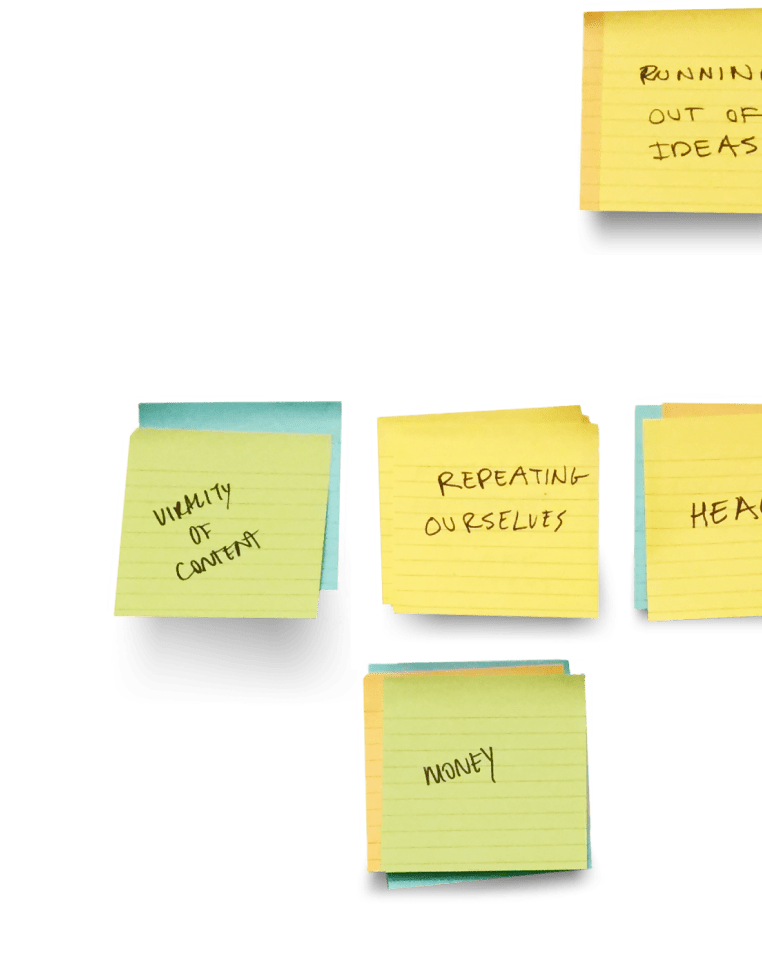 RUNNIN
OUT OF
IDEAS
VIRALITY
OF
CONTENT
REPEATING
OURSELVES
HEA
MONEY